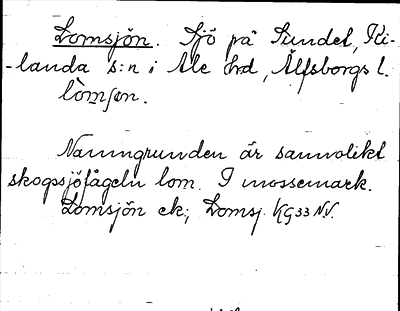 Lomsjön. Sjö på Sundet, Ki-
-landa s:n i Ale hrd, Älfsborgs l.
lòmʃøn.
Namngrunden är sannolikt
skogssjöfågeln lom. I mossemark.
Lomsjön ek; Lomsj. KG33 NV.